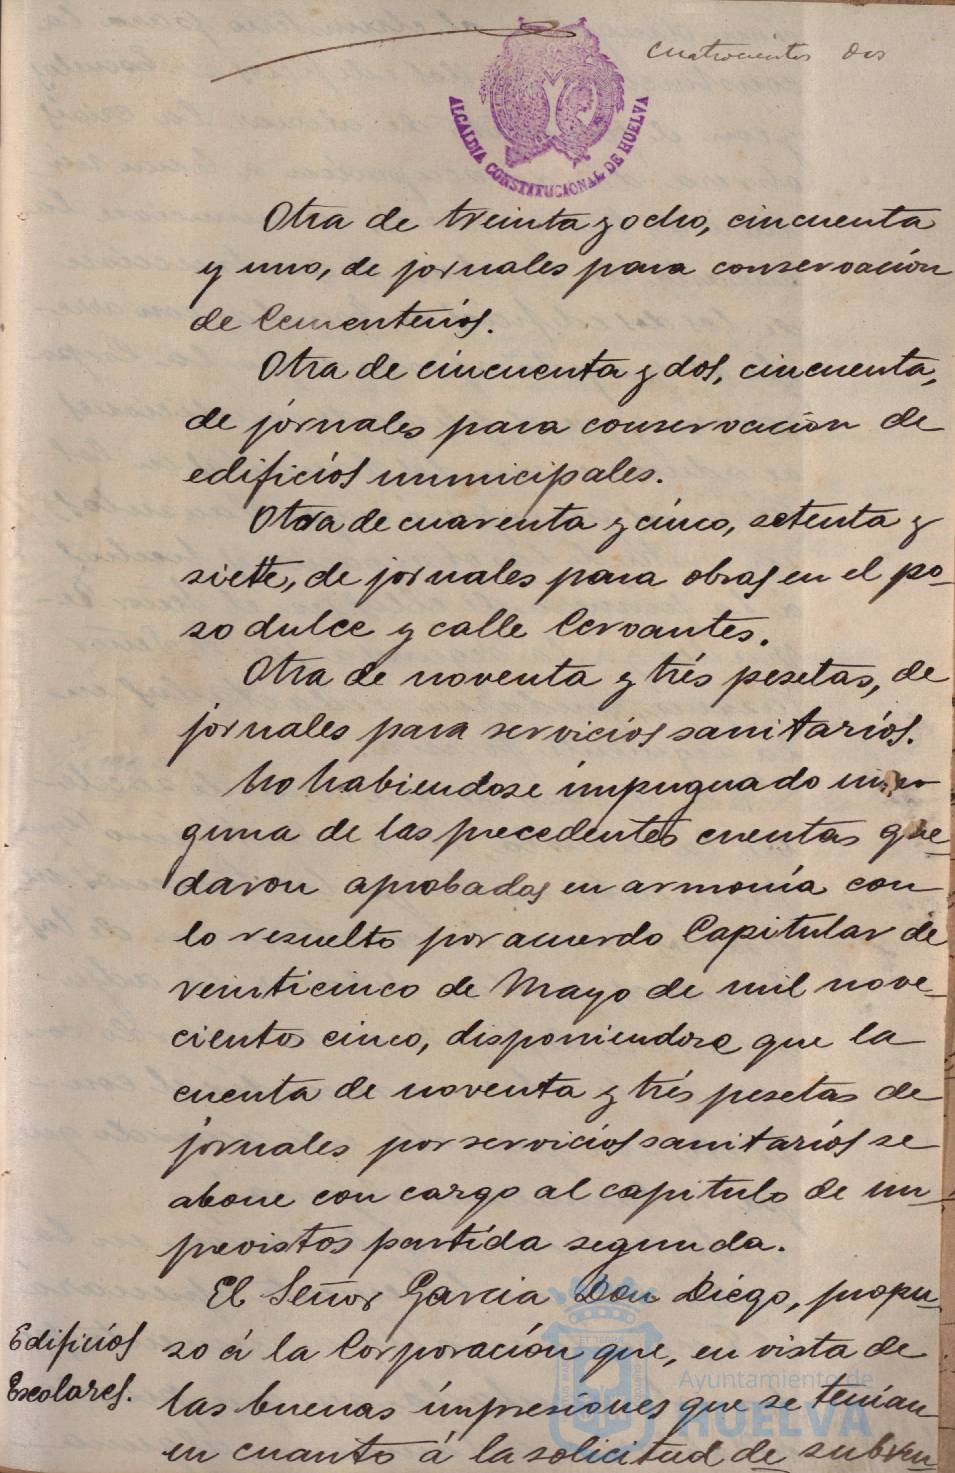 Cuatrocientos dos
ALCALDIA CONSTITUCIONAL DE HUELVA
Otra de treinta y ocho, cincuenta
y uno, de jornales para conservación
de Cementerios.
Otra de cincuenta y dos, cincuenta,
de jornales para conservación de
edificios municipales.
Otra de cuarenta y cinco, setenta y
siete, de jornales para obras en el po-
so dulce y calle Cervantes.
Otra de noventa y trés pesetas, de
jornales para servicios sanitarios.
No habiendose impugnado nin-
guna de las precedentes cuentas que-
daron aprobadas en armonía con
lo resuelto por acuerdo Capitular de
veinticinco de Mayo de mil nove-
cientos cinco, disponiendose que la
cuenta de noventa y trés pesetas de
jornales por servicios sanitarios se
abone con cargo al capitulo de im-
previstos partida segunda.
El Señor Garcia Don Diego, propu-
Edificios
so á la Corporación que, en vista de
Escolares.
las buenas impresiones que se tenian
en cuanto á la solicitud de subven-
Ayuntamiento de
HUELVA